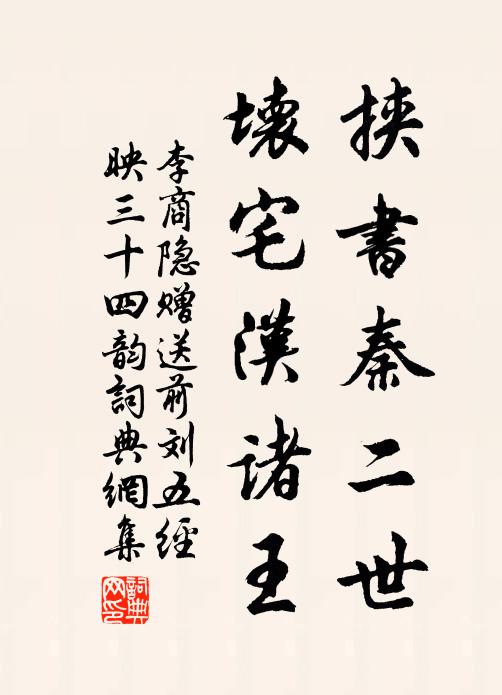 挾書秦二世
壊宅漢诸王
李商隐赠送前刘五經
映三十四韵詞典網集
詞典網印